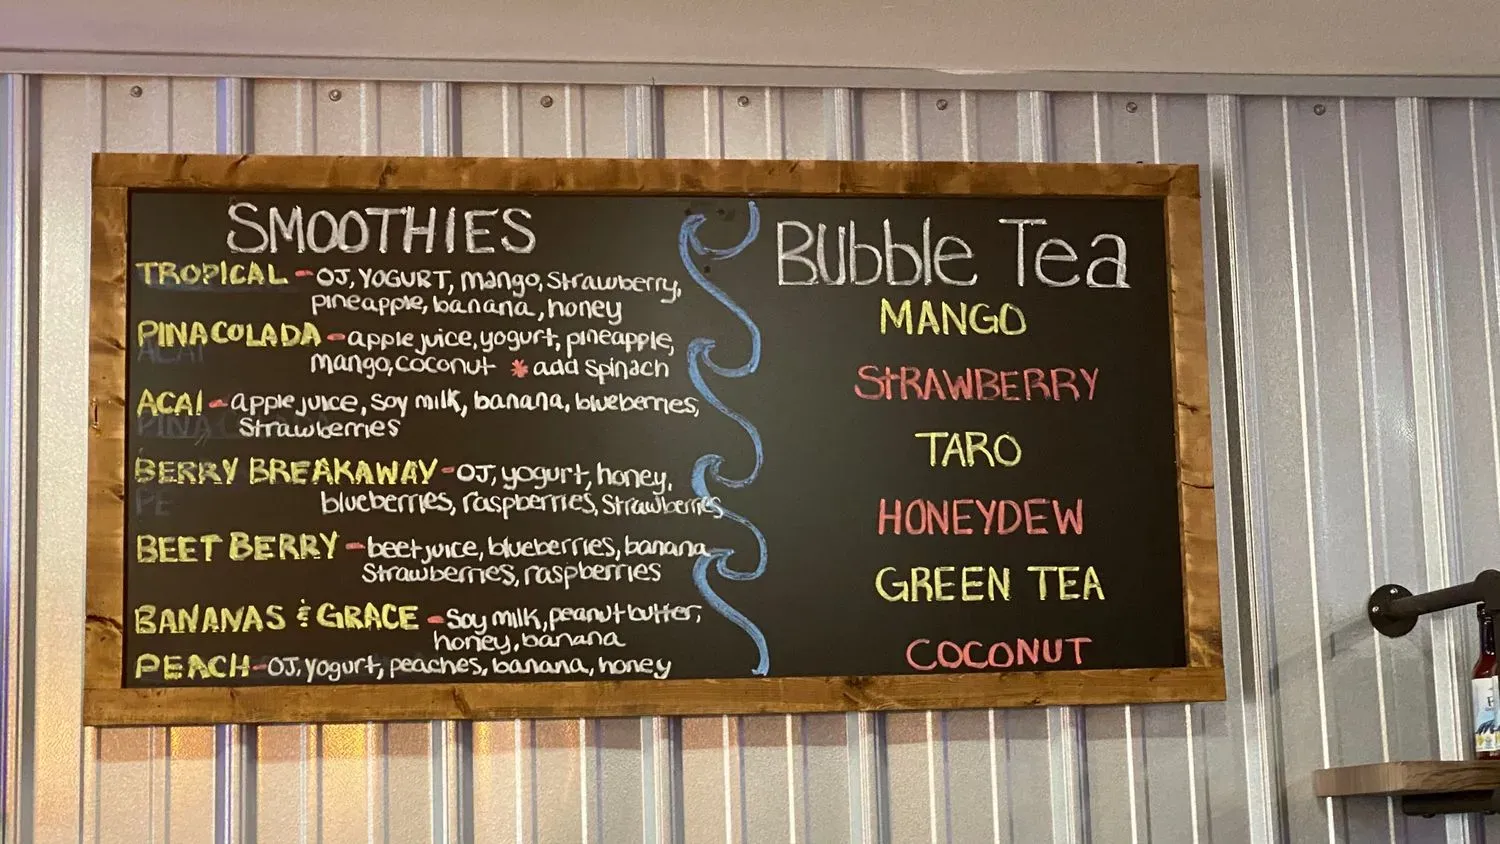 SMOOTHIES
TROPICAL - OJ, YOGURT, mango, Strawberry,
pineapple, banana, honey
PINA COLADA - apple juice, yogurt, pineapple,
mango, coconut * add spinach
ACAI - apple juice, soy milk, banana, blueberries,
Strawberries
BERRY BREAKAWAY - OJ, yogurt, honey,
blueberries, raspberries, Strawberries
BEET BERRY - beet juice, blueberries, banana
Strawberries, raspberries
BANANAS & GRACE - Soy milk, peanut butter,
honey, banana
PEACH - OJ, yogurt, peaches, banana, honey
BUbble Tea
MANGO
STRAWBERRY
TARO
HONEYDEW
GREEN TEA
COCONUT